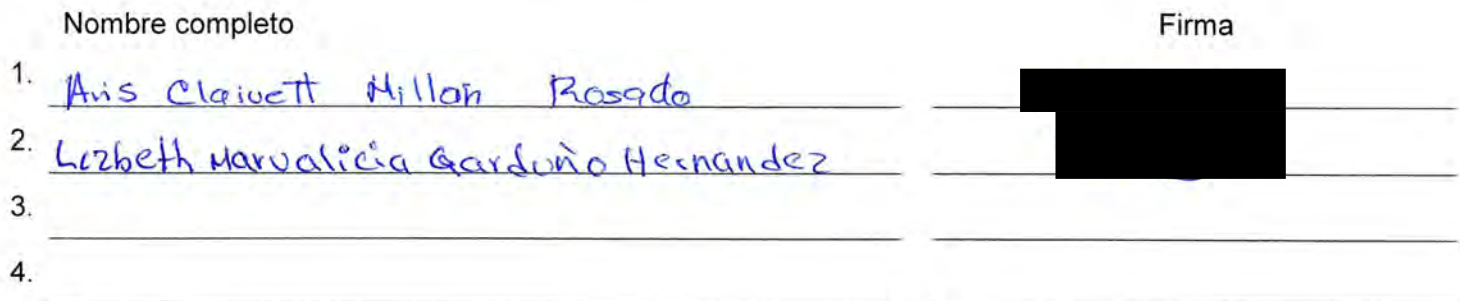 Nombre completo Firma
1. Avis Claivett Millan Rosado
2. Lizbeth Marvalicia Garduño Hernandez
3.
4.